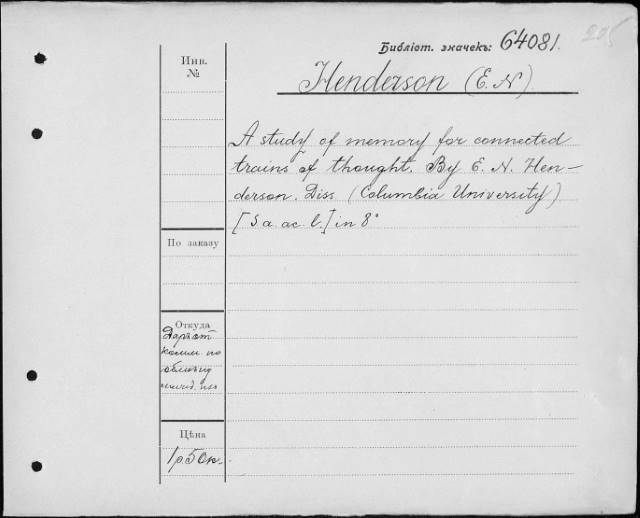 Библіот. значекъ: 64081. 205
Инв.
№
Henderson (E. N).
A study of memory for connected
trains of thought. By E. N. Hen-
derson. Diss. (Columbia University)
[S a. ac. l.] in 8°
По заказу
Откуда
по
Цѣна
1 р. 50 к.